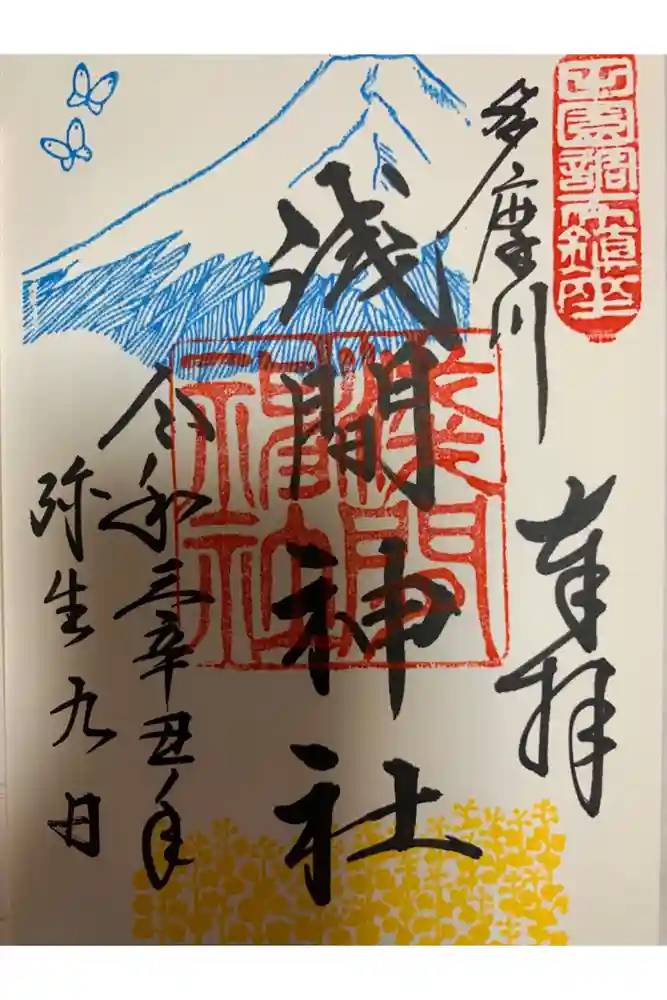 田園調布鎮座
奉拝
多摩川
浅間神社
淺間
神社
令和三辛丑年
弥生九日